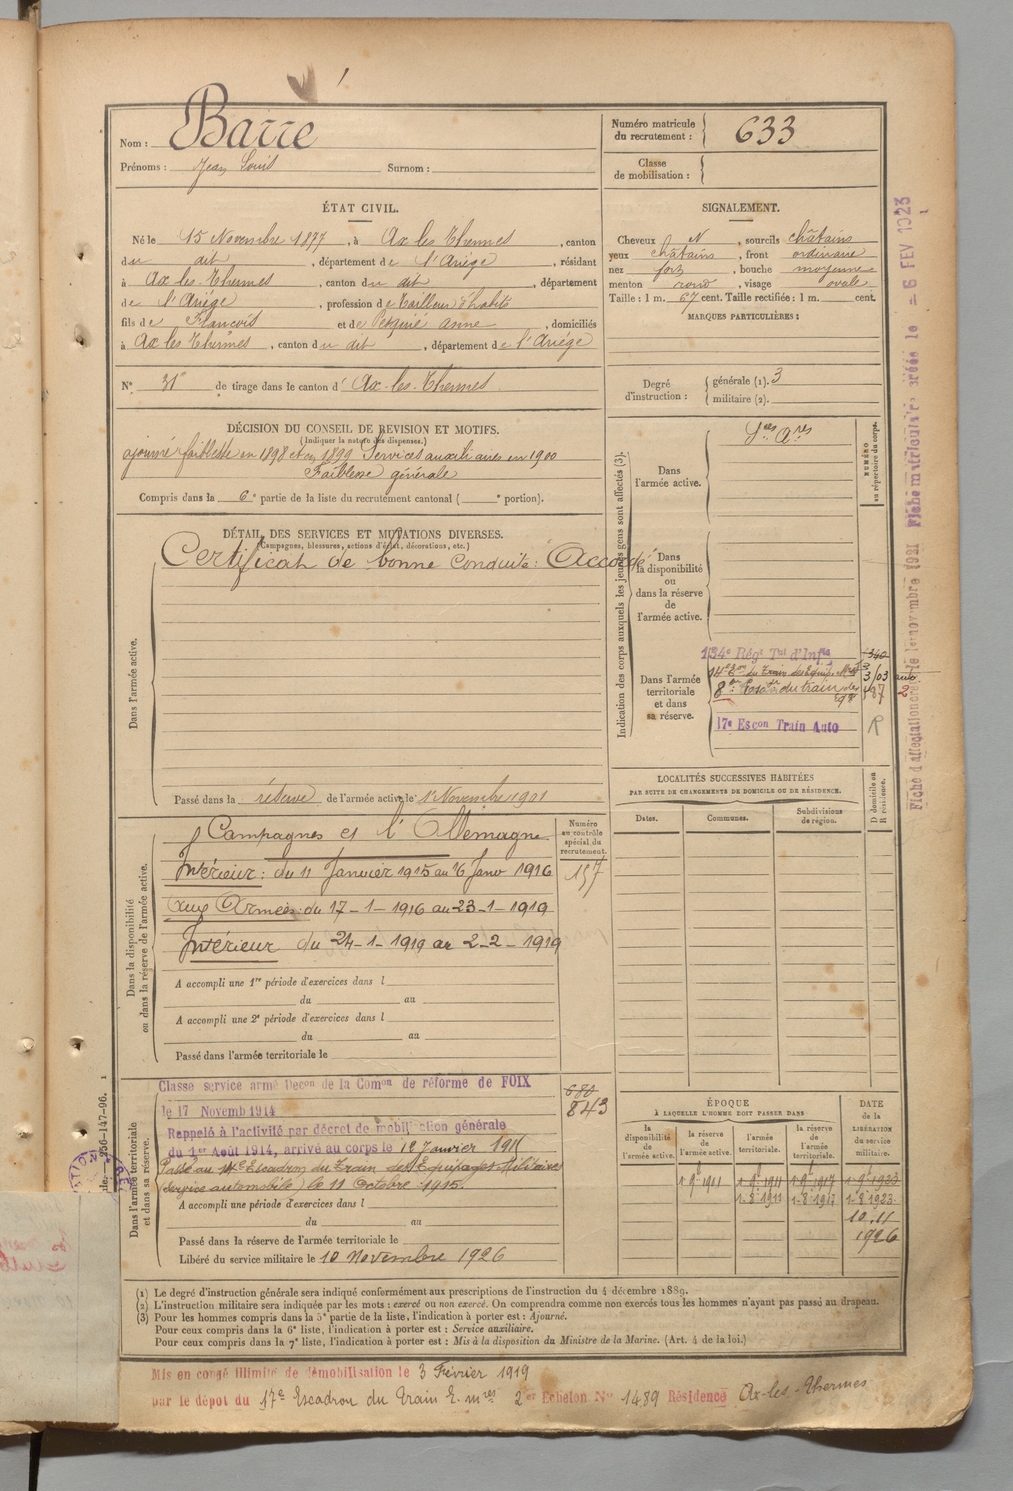 Nom : Barré
Prénoms : Jean Louis Surnom :
Numéro matricule
du recrutement : 633
Classe
de mobilisation :
ÉTAT CIVIL.
Né le 15 Novembre 1877, à Ax les Thermes, canton
du dit, département de l'Ariège, résidant
à Ax les Thermes, canton du dit, département
de l'Ariége, profession de Tailleur d'habits
fils de François et de Pesquié anne, domiciliés
à Ax les Thermes, canton du dit, département de l'Ariége
N° 31 de tirage dans le canton d' Ax-les-Thermes
SIGNALEMENT.
Cheveux N, sourcils châtains
yeux châtains, front ordinaire
nez fort, bouche moyenne
menton rond, visage ovale
Taille : 1 m. 67 cent. Taille rectifiée : 1 m. cent.
MARQUES PARTICULIÈRES :
Degré
d'instruction :
générale (1). 3
militaire (2).
DÉCISION DU CONSEIL DE REVISION ET MOTIFS.
(Indiquer la nature des dispenses.)
ajourné faiblesse en 1898 et en 1899 Services auxiliaires en 1900
Faiblesse générale
Compris dans la 6e partie de la liste du recrutement cantonal ( e portion).
DÉTAIL DES SERVICES ET MUTATIONS DIVERSES.
(Campagnes, blessures, actions d'éclat, décorations, etc.)
Certificat de bonne conduite : "Accordé"
Dans l'armée active.
Passé dans la réserve de l'armée active le 1er Novembre 1901
Dans la disponibilité
ou dans la réserve de l'armée active.
Campagnes et l'Allemagne
Intérieur : du 11 Janvier 1915 au 16 Janv 1916
Aux Armées : du 17-1-1916 au 23-1-1919
Intérieur du 24-1-1919 au 2-2-1919
Numéro
au contrôle
spécial du
recrutement.
157
A accompli une 1re période d'exercices dans l
du au
A accompli une 2e période d'exercices dans l
du au
Passé dans l'armée territoriale le
Dans l'armée territoriale
et dans sa réserve.
Classe service armé Decon de la Comon de réforme de FOIX
le 17 Novemb 1914
Rappelé à l'activité par décret de mobilisation générale
du 1er Août 1914, arrivé au corps le 12 Janvier 1915
Passé au 14e Escadron du Train des Equipages Militaires
(service automobile) le 11 Octobre 1915.
680
843
A accompli une période d'exercices dans l
du au
Passé dans la réserve de l'armée territoriale le
Libéré du service militaire le 10 Novembre 1926
Indication des corps auxquels les jeunes gens sont affectés (3).
NUMÉRO
au répertoire du corps.
Dans
l'armée active.
Sces Ares
Dans
la disponibilité
ou
dans la réserve
de
l'armée active.
Dans l'armée
territoriale
et dans
sa réserve.
134e Régt Tal d'Infie
14e Eon du Train des Equip. Mres
8e du train des
17e Escon Train Auto
340
3/03 auto
R
LOCALITÉS SUCCESSIVES HABITÉES
PAR SUITE DE CHANGEMENTS DE DOMICILE OU DE RÉSIDENCE.
D domicile ou
R résidence.
Dates.
Communes.
Subdivisions
de région.
ÉPOQUE
À LAQUELLE L'HOMME DOIT PASSER DANS
DATE
de la
LIBÉRATION
du service
militaire.
la
disponibilité
de
l'armée active.
la réserve
de
l'armée active.
l'armée
territoriale.
la réserve
de l'armée
territoriale.
1-9-1911 1-9-1911 1-9-1917 1-9-1923
1-8-1911 1-8-1917 1-8-1923
10.11
1926
(1) Le degré d'instruction générale sera indiqué conformément aux prescriptions de l'instruction du 4 décembre 1889.
(2) L'instruction militaire sera indiquée par les mots : exercé ou non exercé. On comprendra comme non exercés tous les hommes n'ayant pas passé au drapeau.
(3) Pour les hommes compris dans la 5e partie de la liste, l'indication à porter est : Ajourné.
Pour ceux compris dans la 6e liste, l'indication à porter est : Service auxiliaire.
Pour ceux compris dans la 7e liste, l'indication à porter est : Mis à la disposition du Ministre de la Marine. (Art. 4 de la loi.)
Mis en congé illimité de démobilisation le 3 Février 1919
par le dépôt du 17e Escadron du Train E. mres 2er Echelon N° 1489 Résidence Ax-les-Thermes
Fiche d'affectation créée le 1er novembre 1921 Fiche matriculaire créée le = 6 FEV 1923
256-147-96.